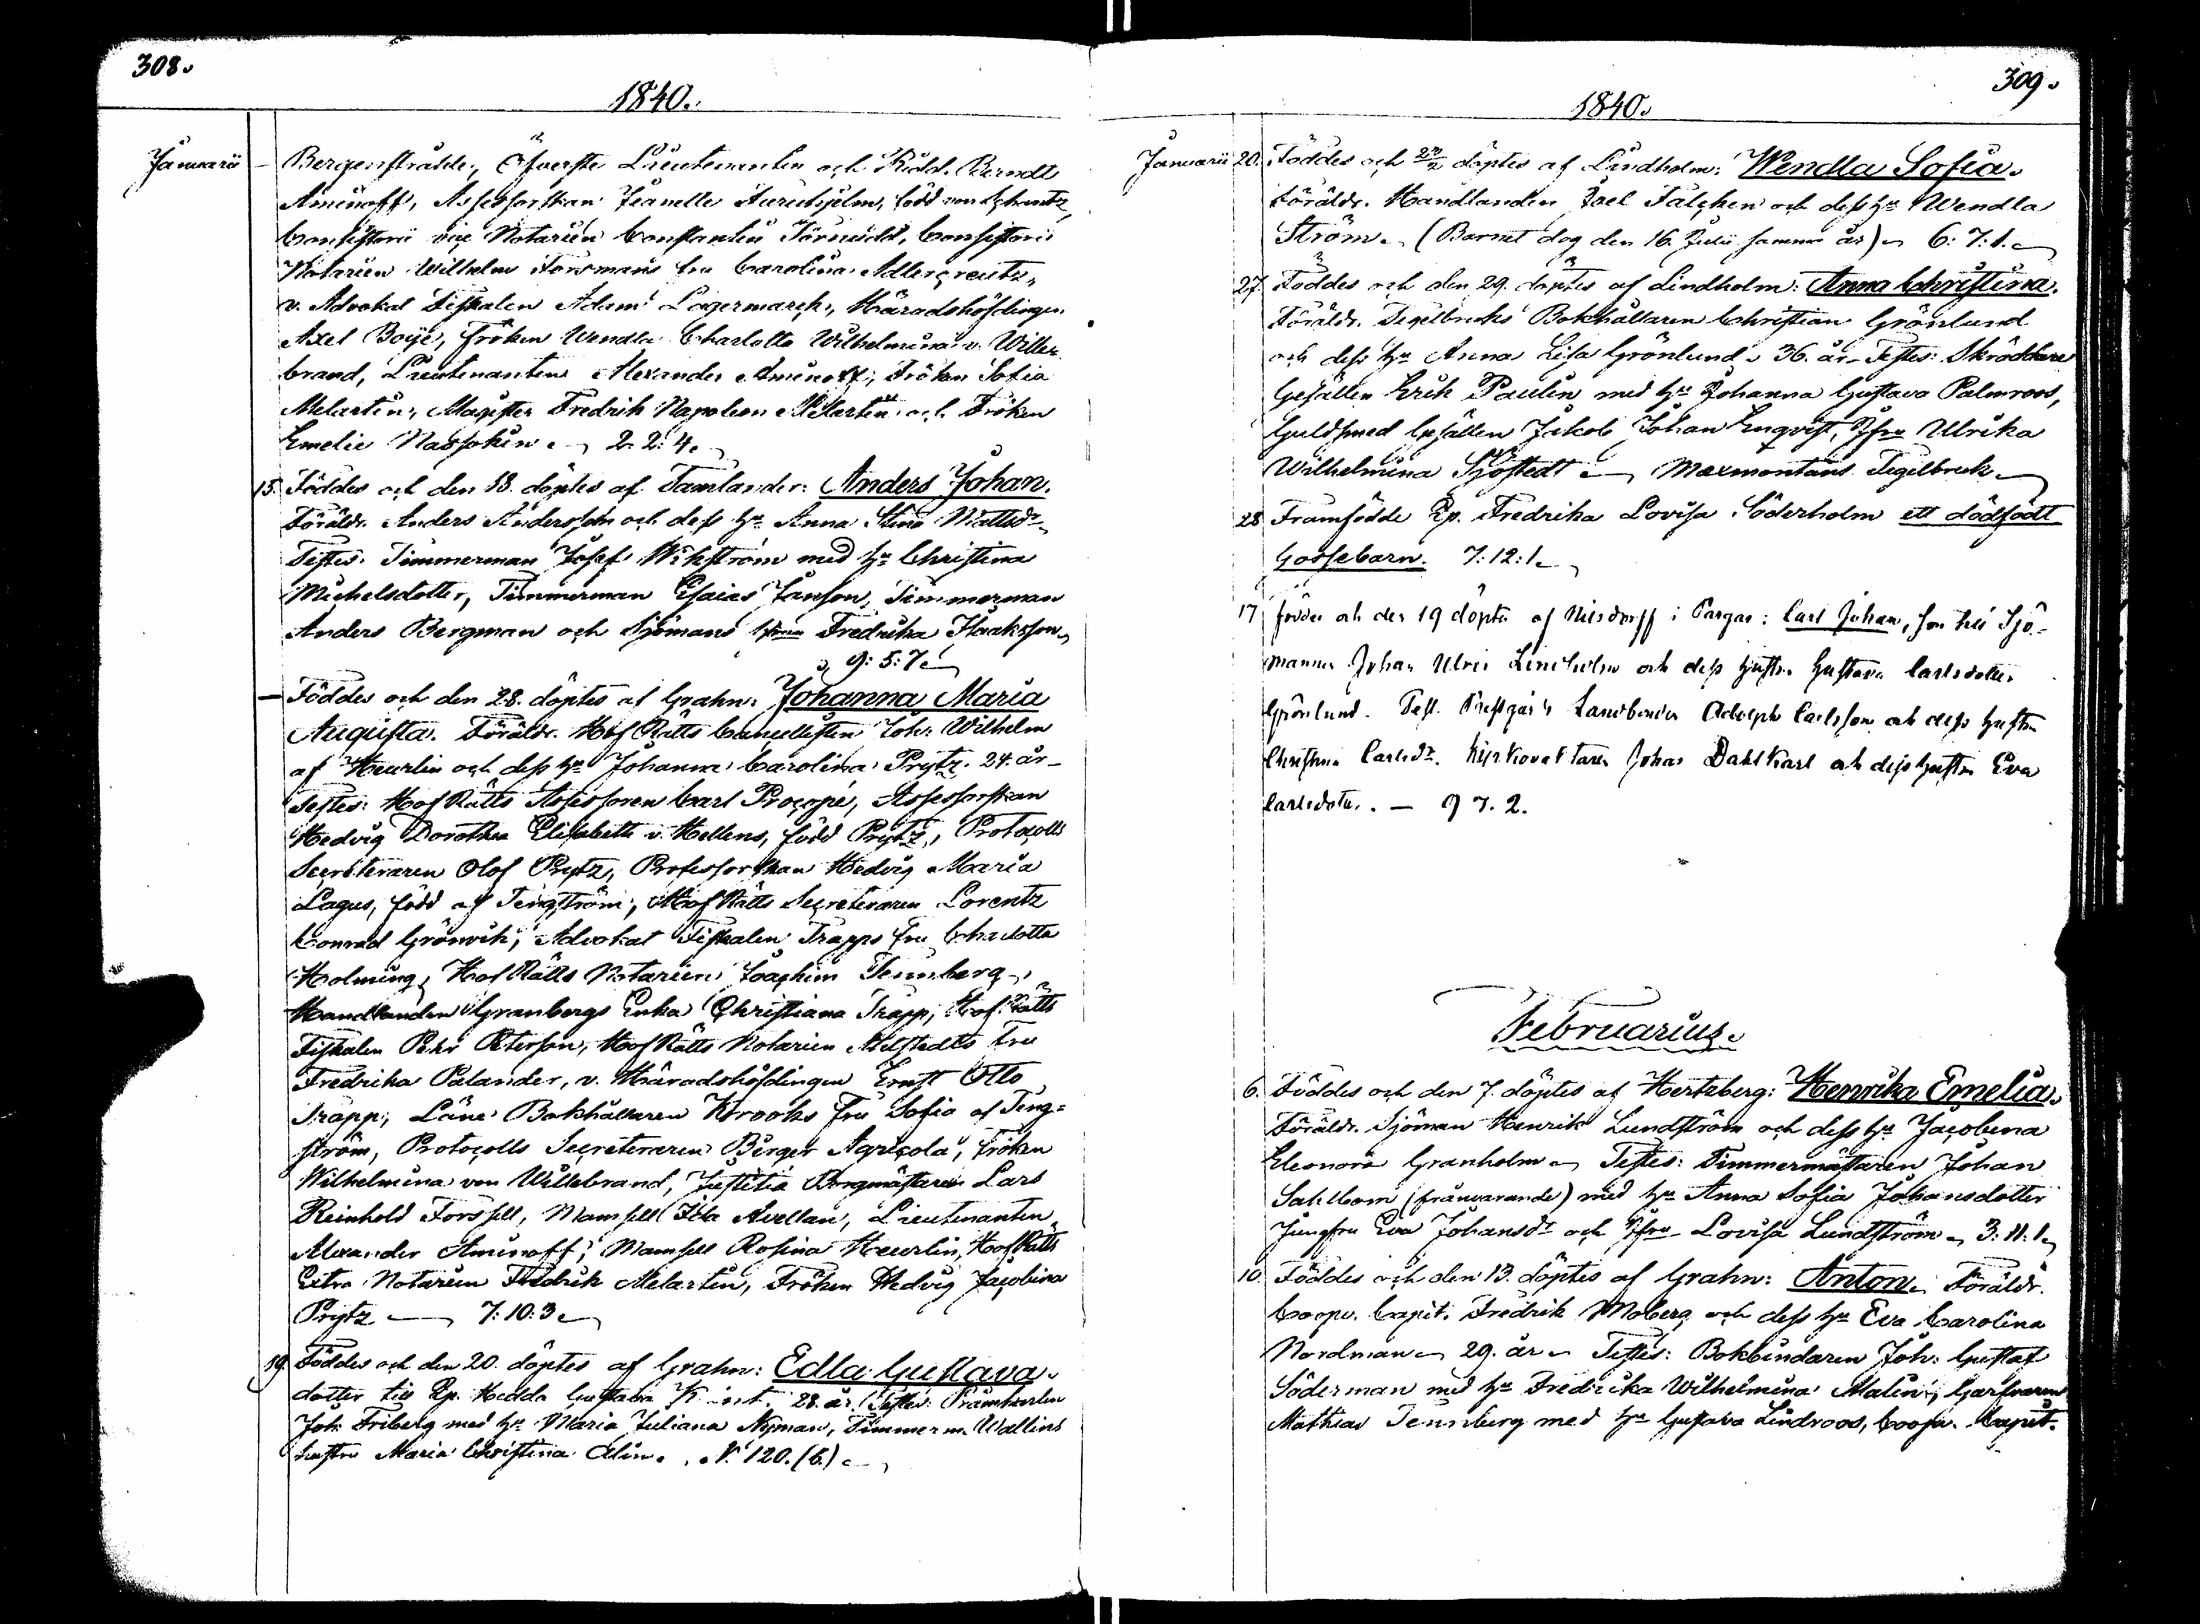 308.
1840.
Januarii
Bergenstråhle, Öfverste Lieutenanten och Ridd. Berndt
Aminoff, Assessorskan Jeanette Aurehjelm, född von Schantz,
Consistorii vice Notarien Constantin Törnudd, Consistorii
Notarien Wilhelm Forsmans fru Carolina Adlercreutz,
v. Advokat Fiskalen Adam Lagermarck, Häradshöfdingen
Axel Boije, Fröken Wendla Charlotta Wilhelmina v. Wille-
brand, Lieutenanten Alexander Aminoff, Fröken Sofia
Melartin, Magister Fredrik Napoleon Melartin och Fröken
Emelie Nassokin. 2: 2: 4.
15. Föddes och den 18. döptes af Tamlander: Anders Johan.
Föräldr. Anders Andersson och dess hu Anna Stina Mattsdr
Testes. Timmerman Josef Wikström med hu Christina
Michelsdotter, Timmerman Esaias Janson, Timmerman
Anders Bergman och Sjömans hustru Fredrika Haaksson
9: 5: 7.
— Föddes och den 28. döptes af Grahn: Johanna Maria
Augusta. Föräldr. Hof Rätts Cancellisten Joh: Wilhelm
af Heurlin och dess hu Johanna Carolina Prytz. 24. år
Testes: Hof Rätts Assessoren Carl Procopé, Assessorskan
Hedvig Dorothea Elisabeth v. Hellens, född Prytz, Protocolls
Secreteraren Olof Prytz, Professorskan Hedvig Maria
Lagus, född af Tengström, Hof Rätts Secreteraren Lorentz
Conrad Grönvik, Advokat Fiskalen Trapps fru Charlotta
Holming, Hof Rätts Notarien Joachim Tennberg,
Handlanden Granbergs Enka Christiana Trapp, Hof Rätts
Fiskalen Pehr Peterson, Hof Rätts Notarien Fru
Fredrika Palander, v. Häradshöfdingen Ernst Otto
Trapp, Läne Bokhållaren Krooks Fru Sofia af Teng=
ström, Protocolls Secreteraren Birger Agricola, Fröken
Wilhelmina von Willebrand, Justitiæ Borgmästaren Lars
Reinhold Forssell, Mamsell Ida Avellan, Lieutenanten
Alexander Aminoff, Mamsell Rosina Heurlin, Hof Rätts
Extra Notarien Fredrik Melartin, Fröken Hedvig Jacobina
Prytz 7: 10: 3
19. Föddes och den 20. döptes af Grahn: Edla Gustava
dotter till Pp. Hedda Gustava 28. år. Testes: Pråmkarlen
Joh: Friberg med hu Maria Juliana Nyman, Timmerm. Wallins
hustru Maria Christina Alin. N. 120. (6.)
309.
1840.
Januarii 20. Föddes och 2/2 döptes af Lindholm: Wendla Sofia.
Föräldr. Handlanden Joel Falcken och dess hu Wendla
Ström. (Barnet dog den 16. Julii samma år) 6: 7: 1.
27. Föddes och den 29. döptes af Lindholm: Anna Christina.
Föräldr. Tegelbruks Bokhållaren Christian Grönlund
och dess hu Anna Lisa Grönlund 36. år Testes: Skräddare
Gesällen Erik Paulin med hu Johanna Gustava Palmroos,
Guldsmed Gesällen Jakob Johan Enqvist, Jfru Ulrika
Wilhelmina Sjöstedt Marmontans Tegelbruk
28. Framfödde Pp. Fredrika Lovisa Söderholm ett dödfödt
Gossebarn. 7: 12: 1.
17 föddes och den 19 döptes af Nilsdorff i Pargas: Carl Johan, son till Sjö-
mannen Johan Ulric Lindholm och dess hustru Gustava Carlsdotter
Grönlund. Test. Prestgårds Landbonden Adolph Carlsson och dess hustru
Christina Carlsdr. Kyrkovaktaren Johan Dahlkarl och dess hustru Eva
Carlsdotter. — 9 7. 2.
Februarius.
6. Föddes och den 7. döptes af Hertzberg: Henrika Emelia.
Föräldr. Sjöman Henrik Lundström och dess hu Jacobina
Eleonora Granholm Testes: Timmermästaren Johan
Sahlbom (frånvarande) med hu Anna Sofia Johansdotter
Jungfru Eva Johansdr och Jfru Lovisa Lundström 3: 11: 1.
10. Föddes och den 13. döptes af Grahn: Anton. Föräldr.
Coopv. Capit. Fredrik Moberg och dess hu Eva Carolina
Nordman 29. år Testes: Bokbindaren Joh: Gustaf
Söderman med hu Fredrika Wilhelmina Malin, Garfvaren
Mathias Tennberg med hu Gustava Lindroos, Coopv. Capit.